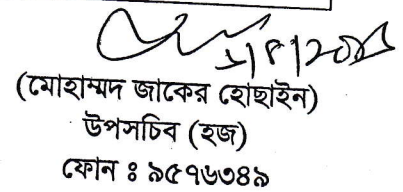 (মোহাম্মদ জাকের হোছাইন)
উপসচিব (হজ)
ফোন ঃ ৯৫৭৬৩৪৯